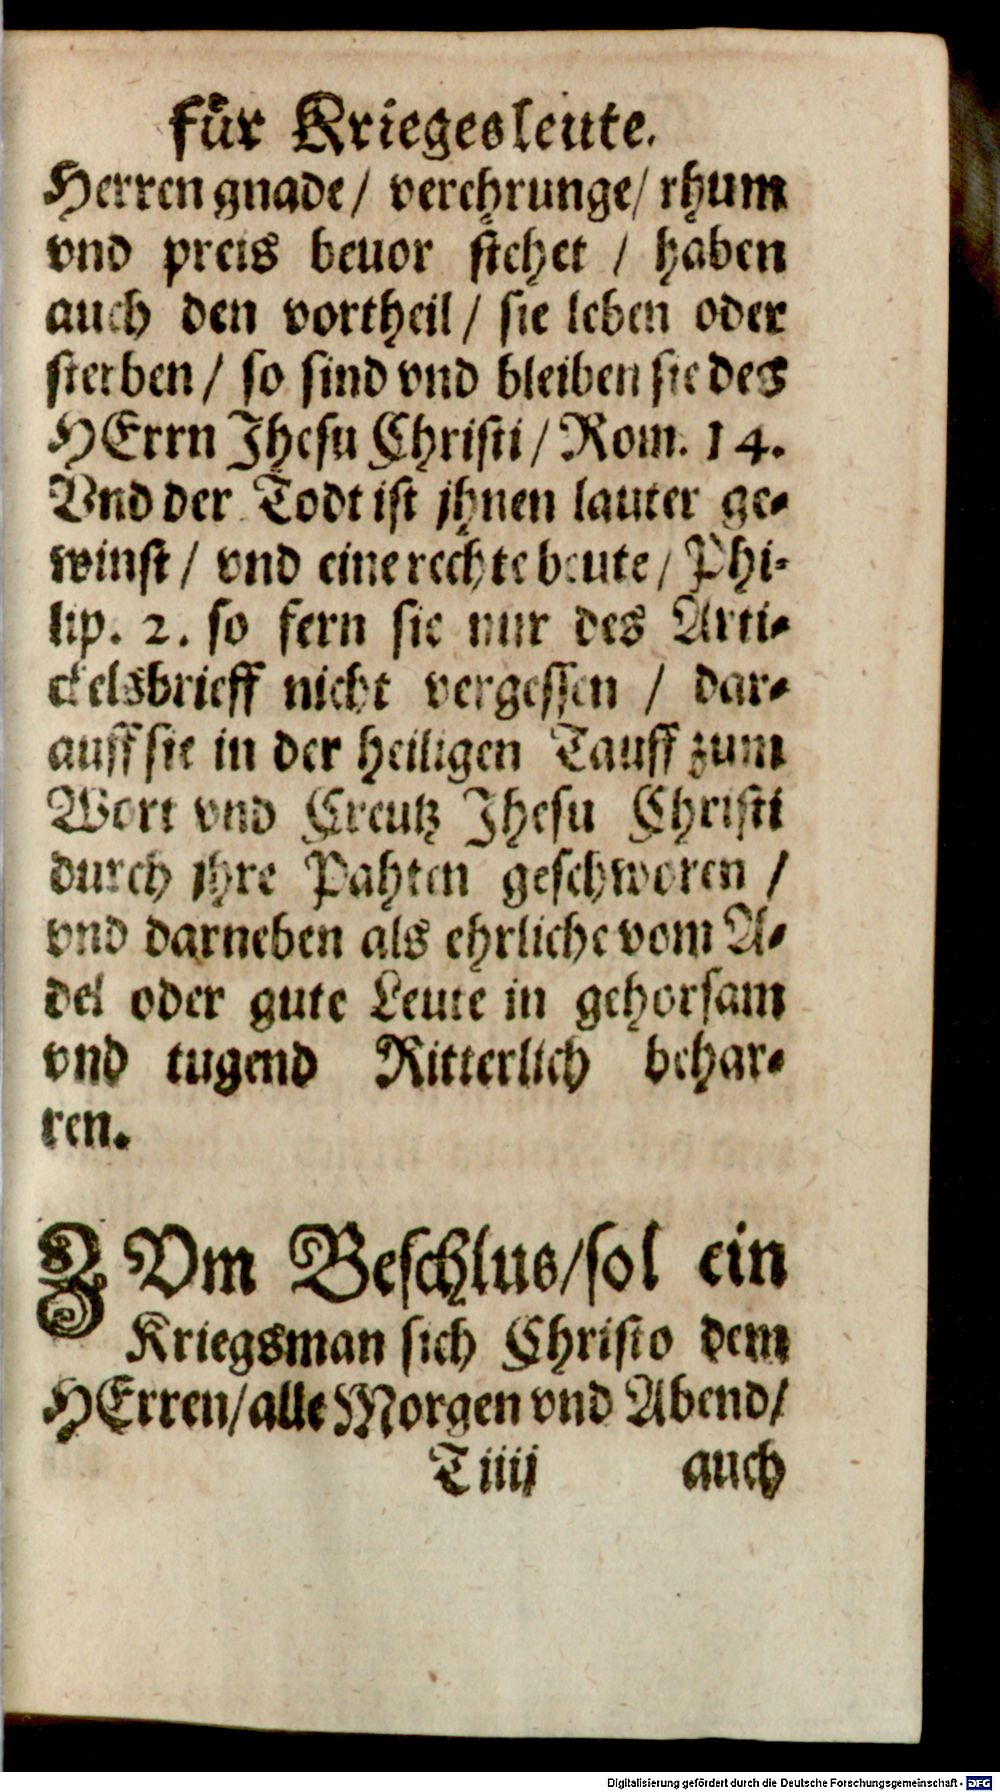 für Kriegesleute.
Herren gnade / verehrunge / rhum
vnd preis beuor stehet / haben
auch den vortheil / sie leben oder
sterben / so sind vnd bleiben sie des
HErrn Jhesu Christi / Rom. 14.
Vnd der Todt ist jhnen lauter ge-
winst / vnd eine rechte beute / Phi-
lip. 2. so fern sie nur des Arti-
ckelsbrieff nicht vergessen / dar-
auff sie in der heiligen Tauff zum
Wort vnd Creutz Jhesu Christi
durch jhre Pahten geschworen /
vnd darneben als ehrliche vom A-
del oder gute Leute in gehorsam
vnd tugend Ritterlich behar-
ren.
ZVm Beschlus / sol ein
Kriegsman sich Christo dem
HErren / alle Morgen vnd Abend /
T iiij auch
Digitalisierung gefördert durch die Deutsche Forschungsgemeinschaft - DFG